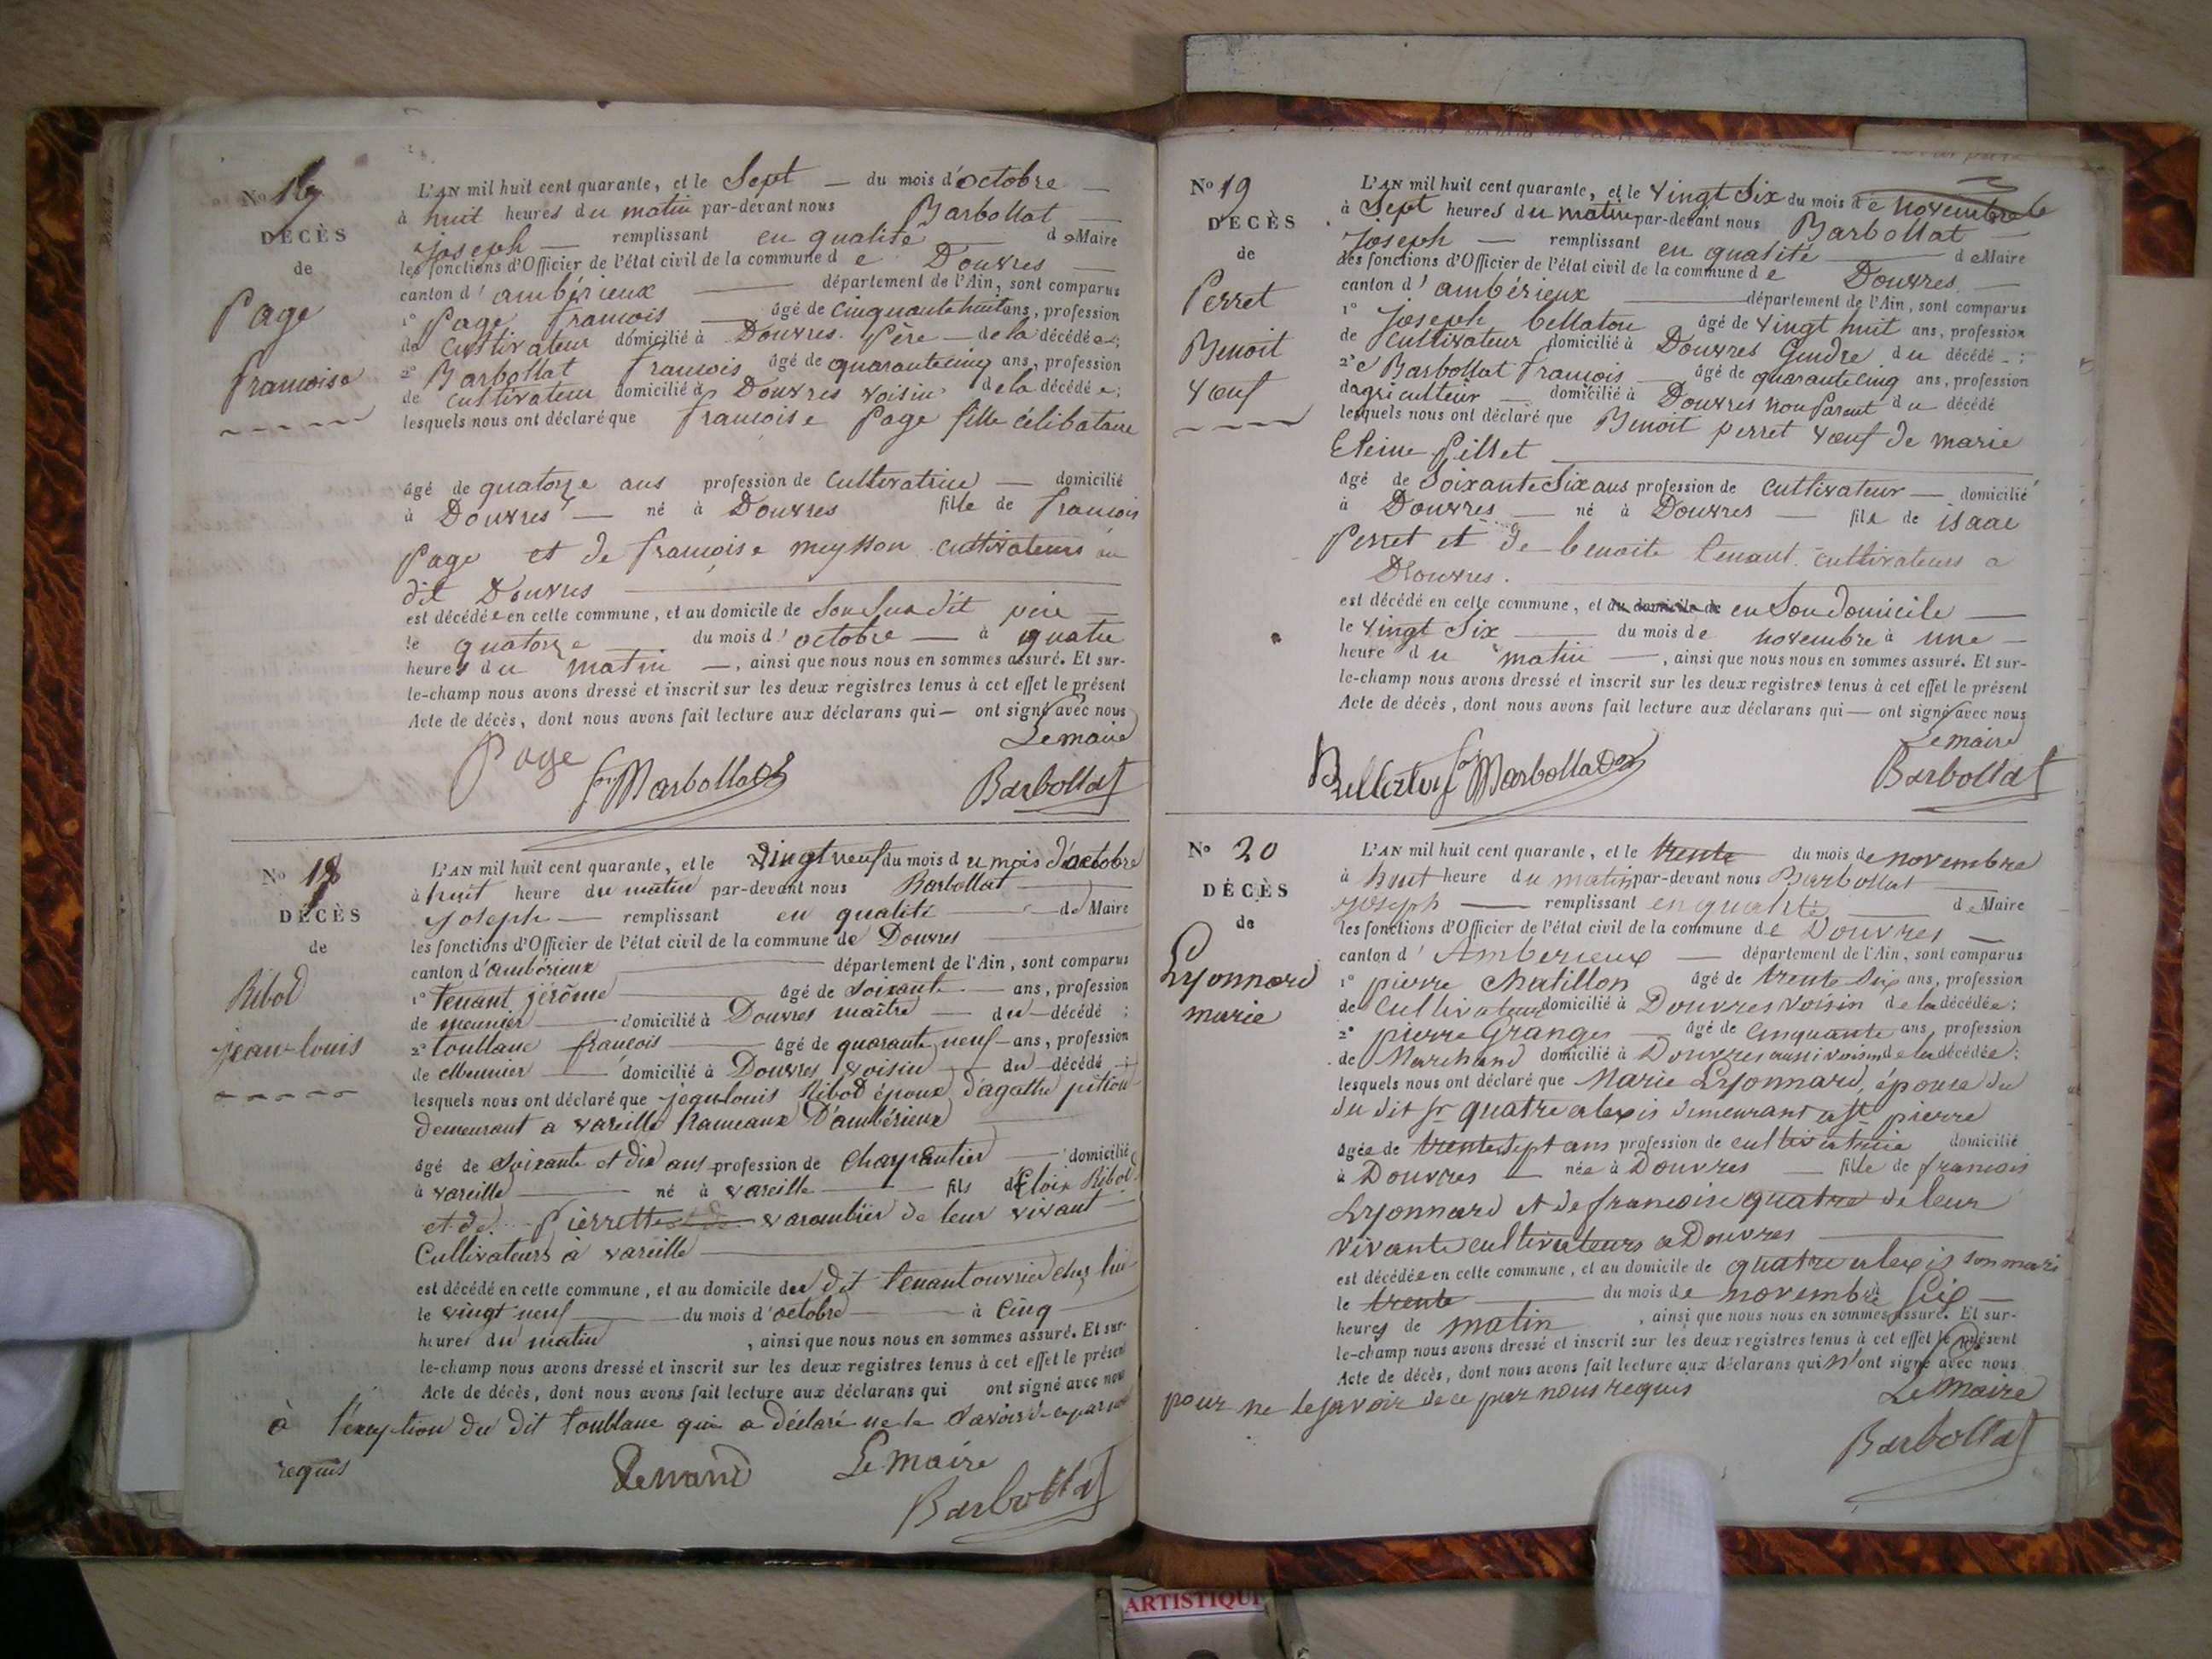 No 17
DÉCÈS
de
Page
francoise
L'AN mil huit cent quarante, et le Sept — du mois d'octobre —
à huit heures du matin par-devant nous Barbollat —
joseph — remplissant en qualité — de Maire
les fonctions d'Officier de l'état civil de la commune de Douvres —
canton d'ambérieux — département de l'Ain, sont comparus
1° Page francois — âgé de cinquante huit ans, profession
de cultivateur domicilié à Douvres. Père — de la décédée;
2° Barbollat francois âgé de quarante cinq ans, profession
de cultivateur domicilié à Douvres voisin de la décédée;
lesquels nous ont déclaré que francoise Page fille célibataire
âgé de quatorze ans profession de cultivatrice — domicilié
à Douvres — né à Douvres fille de francois
Page et de françoise meysson cultivateurs au
dit Douvres —
est décédée en cette commune, et au domicile de Son Susdit père —
le quatorze — du mois d'octobre — à quatre
heures du matin —, ainsi que nous nous en sommes assuré. Et sur-
le-champ nous avons dressé et inscrit sur les deux registres tenus à cet effet le présent
Acte de décès, dont nous avons fait lecture aux déclarans qui — ont signé avec nous
Le maire
Page
Barbollat
No 18
DÉCÈS
de
Ribod
jean-louis
L'AN mil huit cent quarante, et le vingt neuf du mois du mois d'octobre
à huit heure du matin par-devant nous Barbollat —
Joseph — remplissant en qualité — de Maire
les fonctions d'Officier de l'état civil de la commune de Douvres —
canton d'ambérieux — département de l'Ain, sont comparus
1° tenant jérôme — âgé de soixante — ans, profession
de meunier — domicilié à Douvres maître — du décédé;
2° toublanc francois — âgé de quarante neuf — ans, profession
de Meunier — domicilié à Douvres voisin — du décédé;
lesquels nous ont déclaré que jean louis Ribod époux d'agathe pition
demeurant a vareille hameaux D'ambérieux —
âgé de soixante et dix ans profession de charpentier — domicilié
à vareille — né à vareille — fils d'Eloix Ribod
et de Pierrette varambier de leur vivant —
Cultivateurs à vareille —
est décédé en cette commune, et au domicile du dit tenant ouvrier chez lui
le vingt neuf — du mois d'octobre — à cinq
heures du matin, ainsi que nous nous en sommes assuré. Et sur-
le-champ nous avons dressé et inscrit sur les deux registres tenus à cet effet le présent
Acte de décès, dont nous avons fait lecture aux déclarans qui ont signé avec nous
à l'exception du dit toublanc qui a déclaré ne le savoir de ce par nous
requis
Tenand Le maire
Barbollat
No 19
DÉCÈS
de
Perret
Benoit
vœuf
L'AN mil huit cent quarante, et le vingt Six du mois de novembre
à Sept heures du matin par-devant nous Barbollat —
Joseph — remplissant en qualité — de Maire
les fonctions d'Officier de l'état civil de la commune de Douvres. —
canton d'ambérieux — département de l'Ain, sont comparus
1° joseph bellaton âgé de vingt huit ans, profession
de cultivateur domicilié à Douvres Gendre du décédé;
2° Barbollat francois — âgé de quarante cinq ans, profession
d'agriculteur — domicilié à Douvres non parent du décédé
lesquels nous ont déclaré que Benoit perret vœuf de marie
Pillet —
âgé de Soixante Six ans profession de cultivateur — domicilié
à Douvres — né à Douvres — fils de isaac
Perret et de benoite tenant cultivateurs a
Douvres. —
est décédé en cette commune, et au domicile de en Son domicile —
le vingt Six — du mois de novembre à une —
heure du matin —, ainsi que nous nous en sommes assuré. Et sur-
le-champ nous avons dressé et inscrit sur les deux registres tenus à cet effet le présent
Acte de décès, dont nous avons fait lecture aux déclarans qui — ont signé avec nous
Le maire
Bellaton
Barbollat
No 20
DÉCÈS
de
Lyonnard
marie
L'AN mil huit cent quarante, et le trente du mois de novembre
à huit heure du matin par-devant nous Barbollat —
joseph — remplissant en qualité — de Maire
les fonctions d'Officier de l'état civil de la commune de Douvres —
canton d'Amberieux — département de l'Ain, sont comparus
1° pierre chatillon âgé de trente six ans, profession
de cultivateur domicilié à Douvres voisin de la décédée;
2° pierre Granger — âgé de cinquante ans, profession
de Marchand domicilié à Douvres aussi voisin de la décédée;
lesquels nous ont déclaré que Marie Lyonnard, épouse du
du dit sr quatre alexis demeurant a st pierre
agée de trente sept ans profession de cultivatrice domicilié
à Douvres — née à Douvres — fille de francois
Lyonnard et de francoise quatre de leur
vivant cultivateurs a Douvres —
est décédée en cette commune, et au domicile de quatre alexis son mari
le trente — du mois de novembre à six —
heures de matin, ainsi que nous nous en sommes assuré. Et sur-
le-champ nous avons dressé et inscrit sur les deux registres tenus à cet effet le présent
Acte de décès, dont nous avons fait lecture aux déclarans qui n'ont signé avec nous
pour ne le savoir de ce par nous requis Le Maire
Barbollat
ARTISTIQUE